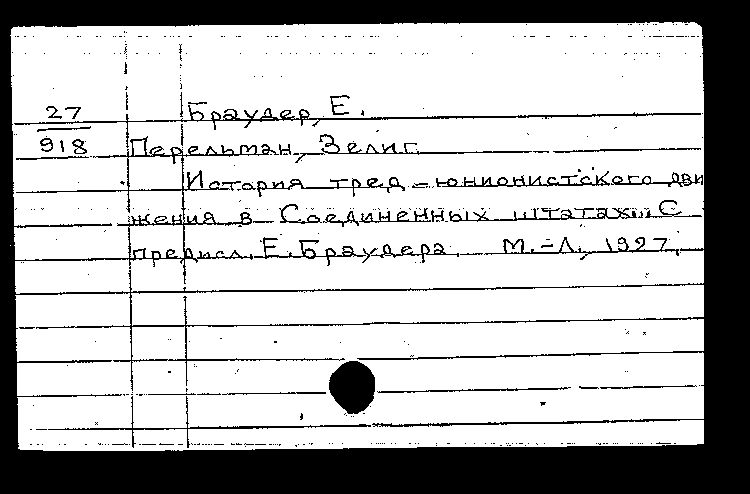 27
918
Браудер, Е.
Перельман, Зелиг.
История тред-юнионистского дви
жения в Соединенных штатах... С
предисл. Е. Браудера. М.-Л., 1927.